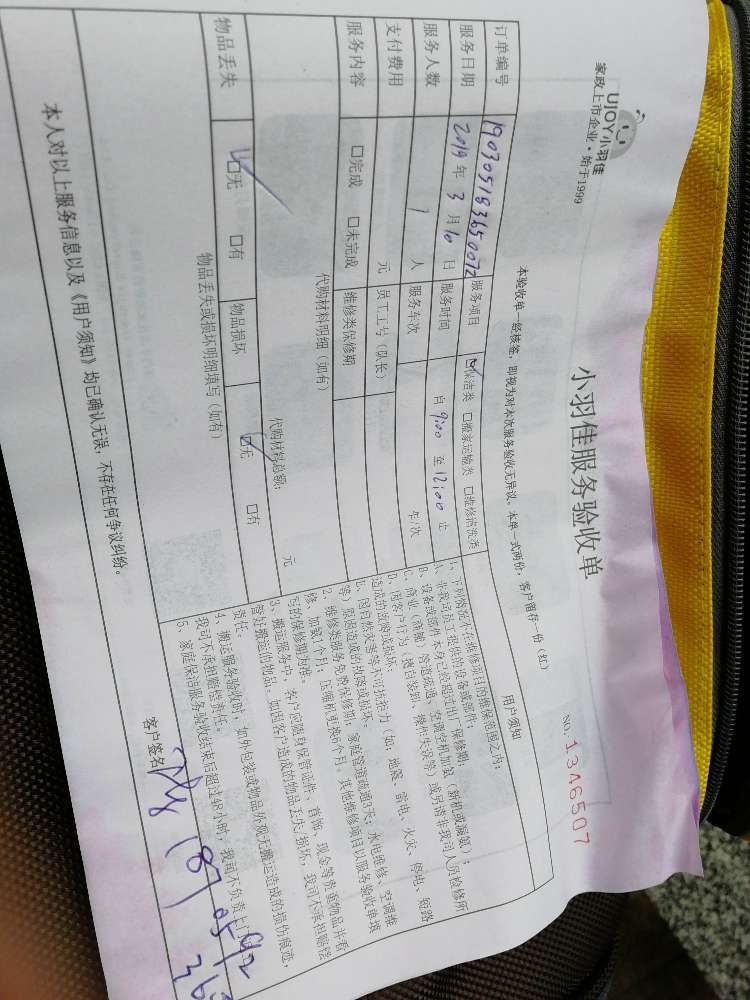 UJOY小羽佳
家政上市企业·始于1999
小羽佳服务验收单
本验收单一经核签，即视为对本次服务验收无异议，本单一式两份，客户留存一份（红）
NO.1346507
订单编号 190305183650072 服务项目 ☑保洁类 □搬家运输类 □维修清洗类
服务日期 2019年3月10日 服务时间 自9:00至12:00止
服务人数 1 人 服务车次 车/次
支付费用 元 员工工号（队长）
服务内容 □完成 □未完成 维修类保修期
代购材料明细（如有）
代购材料总额： 元
物品丢失 ☑无 □有 物品损坏 ☑无 □有
物品丢失或损坏明细填写（如有）
用户须知
1、下列情况不在维修项目的维保范围之内：
A、非我司员工提供的设备或部件；
B、设备或部件本身已经超过出厂保修期；
C、商业（商铺）管道疏通、空调空机加氨（新机或漏氨）；
D、因客户行为（擅自装卸、操作失误等）或另请非我司人员检修所
造成的故障或损坏；
E、因自然灾害等不可抗拒力（如：地震、雷电、火灾、停电、短路
等）原因造成的故障或损坏。
2、维修类服务免费保修期：家庭管道疏通3天；水电维修、空调维
修、加氨1个月，压缩机更换6个月。其他维修项目以服务验收单填
写的保修期为准。
3、搬运服务中，客户应随身保管证件、首饰、现金等贵重物品并看
管处搬运的物品，如因客户造成的物品丢失、损坏，我司不承担赔偿
责任。
4、搬运服务验收时，如外包装或物品外观无搬运造成的损伤痕迹，
我司不承担赔偿责任。
5、家庭保洁服务验收结束后超过48小时，我司不负责上门
本人对以上服务信息以及《用户须知》均已确认无误，不存在任何争议纠纷。
客户签名